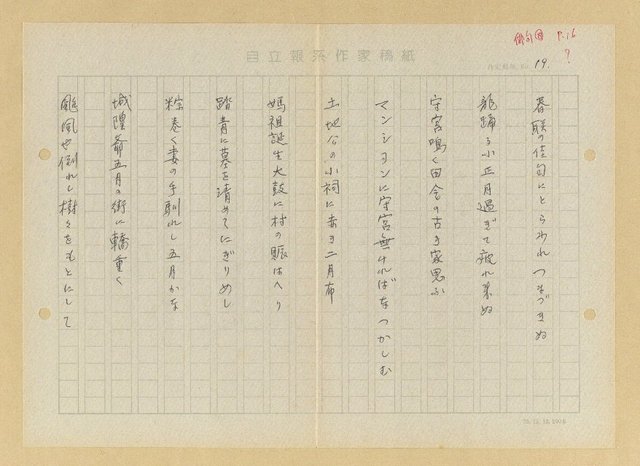 自立報系作家稿紙
俳句④ P.16
?
19.
春聯の佳句にとらわれつまづきぬ
龍踊る小正月過ぎて疲れ来ぬ
守宮鳴く田舎の古き家思ふ
マンションに守宮無ければなつかしむ
土地公の小祠に赤き二月布
媽祖誕生大鼓に村の賑はへり
踏青に墓を清めてにぎりめし
粽巻く妻の手馴れし五月かな
城隍爺五月の街に轎重く
颱風や倒れし樹々をもとにして